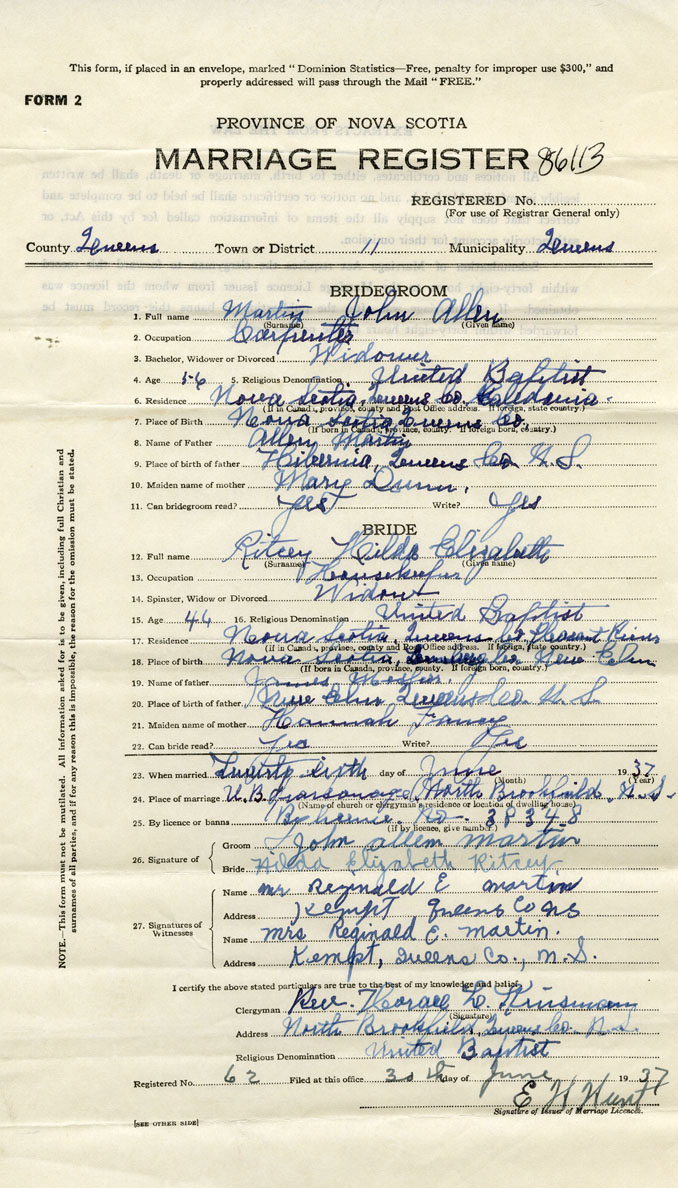 This form, if placed in an envelope, marked "Dominion Statistics—Free, penalty for improper use $300," and
properly addressed will pass through the Mail "FREE."
FORM 2
PROVINCE OF NOVA SCOTIA
MARRIAGE REGISTER 86113
REGISTERED No.
(For use of Registrar General only)
County Queens Town or District 11 Municipality Queens
BRIDEGROOM
1. Full name Martin John Allen
(Surname) (Given name)
2. Occupation Carpenter
3. Bachelor, Widower or Divorced Widower
4. Age 56 5. Religious Denomination United Baptist
6. Residence Nova Scotia, Queens Co. Caledonia
(If in Canada, province, county and Post Office address. If foreign, state country.)
7. Place of Birth Nova Scotia Queens Co.
(If born in Canada, province, county. If foreign born, country.)
8. Name of Father Allen Martin
9. Place of birth of father Hibernia, Queens Co. N.S.
10. Maiden name of mother Mary Dunn,
11. Can bridegroom read? yes Write? yes
BRIDE
12. Full name Ritcey Hilda Elizabeth
(Surname) (Given name)
13. Occupation Housekeeper
14. Spinster, Widow or Divorced Widow
15. Age 44 16. Religious Denomination United Baptist
17. Residence Nova Scotia, Queens Co. Pleasant River
(If in Canada, province, county and Post Office address. If foreign, state country.)
18. Place of birth Nova Scotia, Co. New Elm
(If born in Canada, province, county. If foreign born, country.)
19. Name of father James
20. Place of birth of father New Elm Queens Co. N.S.
21. Maiden name of mother Hannah
22. Can bride read? Yes Write? Yes
23. When married Twenty sixth day of June 1937
(Month) (Year)
24. Place of marriage U.B. Parsonage, North Brookfield, N.S.
(Name of church or clergyman's residence or location of dwelling house)
25. By licence or banns By licence No. 38348
(If by licence, give number.)
26. Signature of Groom John allen martin
Bride Hilda Elizabeth Ritcey
27. Signatures of Witnesses
Name mr Reginald E martin
Address Kempt Queens Co ns
Name mrs Reginald E. martin.
Address Kempt, Queens Co., N.S.
I certify the above stated particulars are true to the best of my knowledge and belief.
Clergyman Rev. Horace L. Kinsman
(Signature)
Address North Brookfield, Queens Co. N.S.
Religious Denomination United Baptist
Registered No. 62 Filed at this office 30th day of June 1937
E H Hunt
Signature of Issuer of Marriage Licences.
[SEE OTHER SIDE]
NOTE.—This form must not be mutilated. All information asked for is to be given, including full Christian and
surnames of all parties, and if for any reason this is impossible, the reason for the omission must be stated.